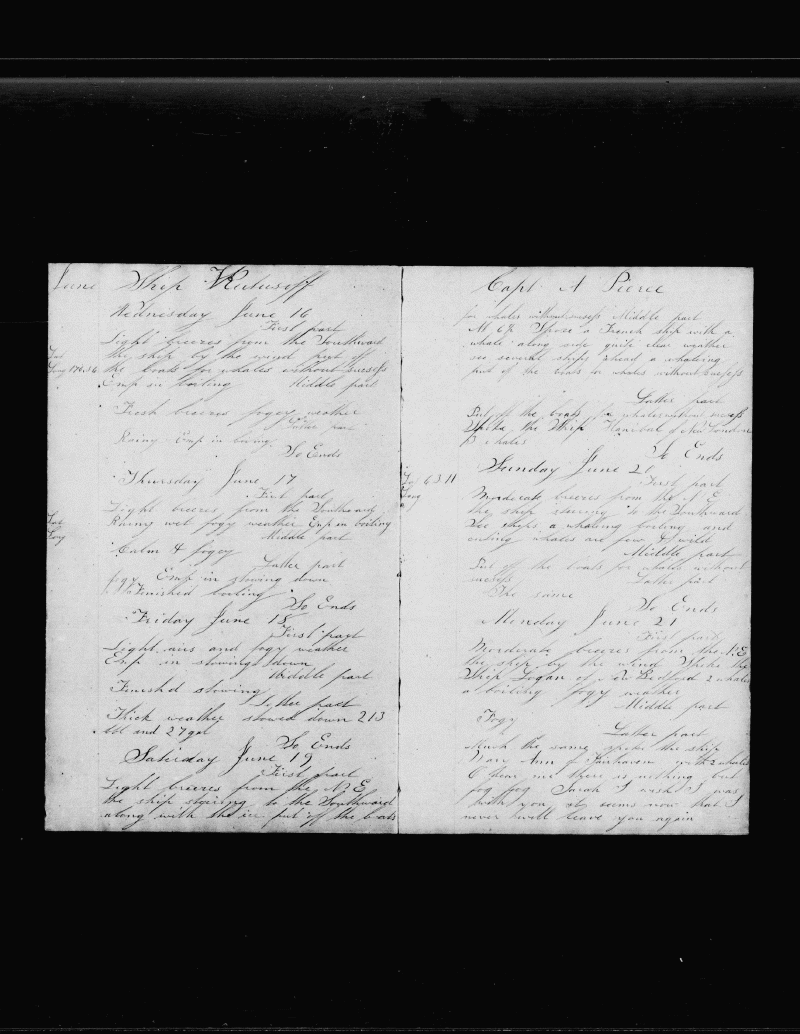 June Ship Kutusoff
Wednesday June 16
First part
Light breezes from the Southward
Lat
Long 176.56
the ship by the wind put off
the boats for whales without success
Emp in boiling Middle part
Fresh breezes fogey weather
Latter part
Rainy Emp in boiling
So Ends
Thursday June 17
First part
Light breezes from the Southward
Lat
Long
Rainy wet fogy weather Emp in boiling
Middle part
Calm & fogey
Latter part
fogy Emp in stowing down
Finished boiling
So Ends
Friday June 18
First part
Light airs and fogy weather
Emp in stowing down
Middle part
Finished stowing
Latter part
Thick weather stowed down 213
bbl and 27 gal
So Ends
Saturday June 19
First part
Light breezes from the N E
the ship steiring to the Southward
along with the ice put off the boats
Capt A Pierce
for whales without success Middle part
At 6 Spoze a French ship with a
whale along side quite clear weather
see several ships ahead a whaleing
put of the boats for whales without success
Latter part
Put off the boats for whales without success
Spoke the Ship Hanibal of New London
whales
So Ends
Sunday June 20
Lat 63.11
Long
First part
Morderate breezes from the N E
the ship steering to the Southward
See ships a whaling boiling and
cuting whales are few & wild
Middle part
Put off the boats for whales without
success Latter part
The same
So Ends
Monday June 21
First part
Morderate breezes from the N.E
the ship by the wind Spoke the
Ship Logan of New Bedford 2 whales
a boiling fogy weather
Middle part
Fogy
Latter part
Much the same spoke the ship
Mary Ann of Fairhaven with 2 whales
O dear me there is nothing but
fog fog Sarah I wish I was
with you it seems now that I
never will leave you again